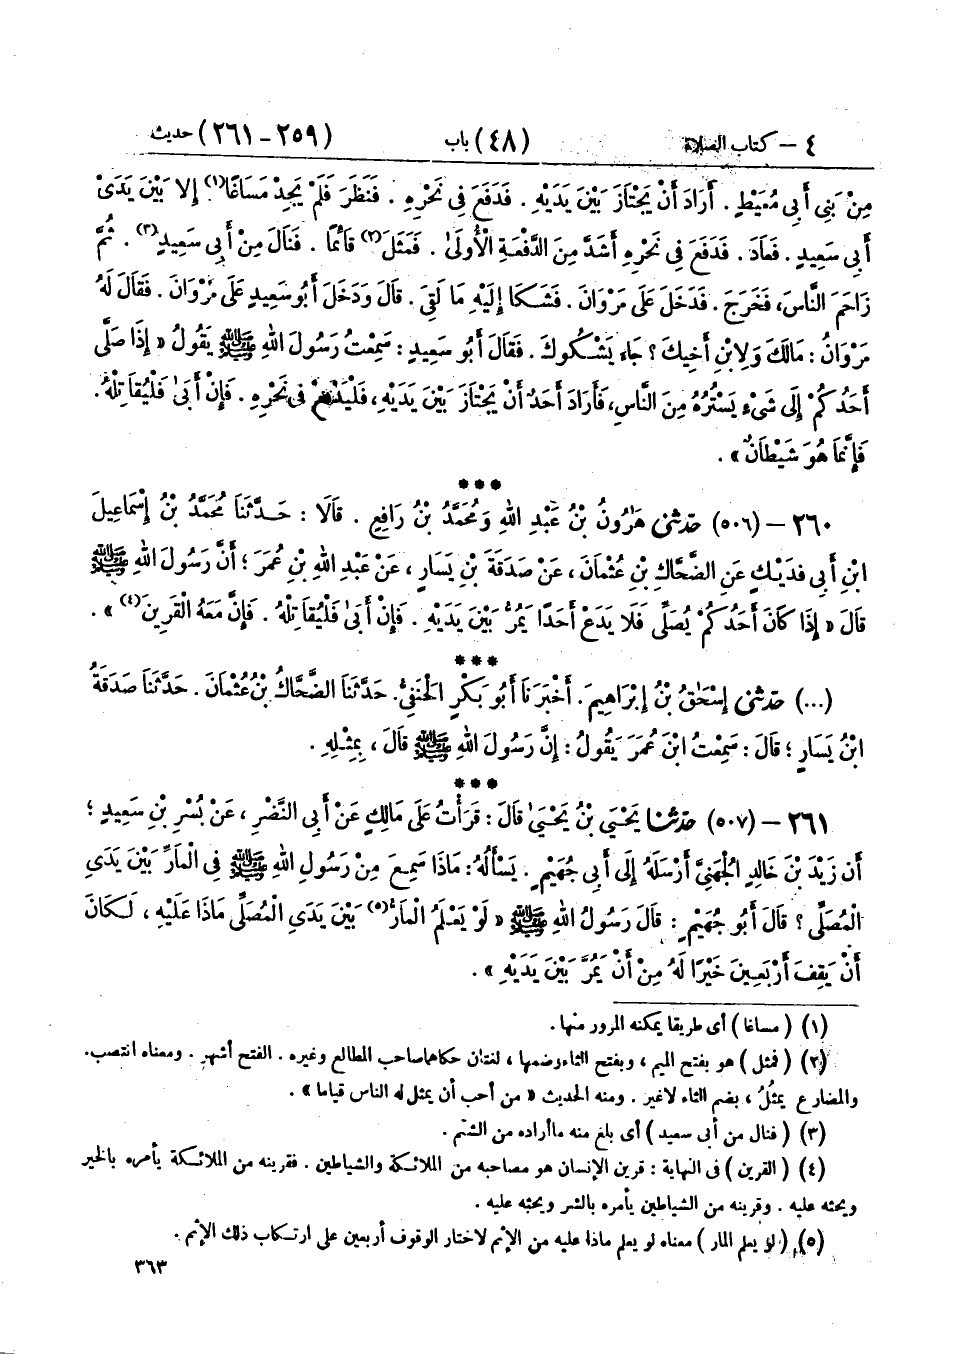 ٤ – كتاب الصلاة (٤٨) باب (٢٥٩ – ٢٦١) حديث
مِنْ بَنِي أَبِي مُعَيْطٍ . أَرَادَ أَنْ يَجْتَازَ بَيْنَ يَدَيْهِ . فَدَفَعَ فِي نَحْرِهِ . فَنَظَرَ فَلَمْ يَجِدْ مَسَاغًا(١) إِلَّا بَيْنَ يَدَىْ
أَبِي سَعِيدٍ . فَعَادَ . فَدَفَعَ فِي نَحْرِهِ أَشَدَّ مِنَ الدَّفْعَةِ الْأُولَىٰ . فَمَثَلَ(٢) قَائِمًا . فَنَالَ مِنْ أَبِي سَعِيدٍ(٣) . ثُمَّ
زَاحَمَ النَّاسَ، فَخَرَجَ . فَدَخَلَ عَلَى مَرْوَانَ . فَشَكَا إِلَيْهِ مَا لَقِيَ . قَالَ وَدَخَلَ أَبُو سَعِيدٍ عَلَى مَرْوَانَ . فَقَالَ لَهُ
مَرْوَانُ : مَالَكَ وَلِابْنِ أَخِيكَ ؟ جَاءَ يَشْكُوكَ . فَقَالَ أَبُو سَعِيدٍ : سَمِعْتُ رَسُولَ اللهِ ﷺ يَقُولُ « إِذَا صَلَّى
أَحَدُكُمْ إِلَى شَيْءٍ يَسْتُرُهُ مِنَ النَّاسِ، فَأَرَادَ أَحَدٌ أَنْ يَجْتَازَ بَيْنَ يَدَيْهِ، فَلْيَدْفَعْ فِي نَحْرِهِ . فَإِنْ أَبَىٰ فَلْيُقَاتِلْهُ .
فَإِنَّمَا هُوَ شَيْطَانٌ » .
***
٢٦٠ – (٥٠٦) حَدَّثَنِي هَارُونُ بْنُ عَبْدِ اللهِ وَمُحَمَّدُ بْنُ رَافِعٍ . قَالَا : حَدَّثَنَا مُحَمَّدُ بْنُ إِسْمَاعِيلَ
ابْنِ أَبِي فُدَيْكٍ عَنِ الضَّحَّاكِ بْنِ عُثْمَانَ ، عَنْ صَدَقَةَ بْنِ يَسَارٍ ، عَنْ عَبْدِ اللهِ بْنِ عُمَرَ ؛ أَنَّ رَسُولَ اللهِ ﷺ
قَالَ « إِذَا كَانَ أَحَدُكُمْ يُصَلِّى فَلَا يَدَعْ أَحَدًا يَمُرُّ بَيْنَ يَدَيْهِ . فَإِنْ أَبَىٰ فَلْيُقَاتِلْهُ . فَإِنَّ مَعَهُ الْقَرِينَ(٤) » .
***
(...) حَدَّثَنِي إِسْحَاقُ بْنُ إِبْرَاهِيمَ . أَخْبَرَنَا أَبُو بَكْرٍ الْحَنَفِيُّ. حَدَّثَنَا الضَّحَّاكُ بْنُ عُثْمَانَ . حَدَّثَنَا صَدَقَةُ
ابْنُ يَسَارٍ ؛ قَالَ : سَمِعْتُ ابْنَ عُمَرَ يَقُولُ : إِنَّ رَسُولَ اللهِ ﷺ قَالَ ، بِمِثْلِهِ .
***
٢٦١ – (٥٠٧) حَدَّثَنَا يَحْيَىٰ بْنُ يَحْيَىٰ قَالَ : قَرَأْتُ عَلَى مَالِكٍ عَنْ أَبِي النَّضْرِ ، عَنْ بُسْرِ بْنِ سَعِيدٍ ؛
أَن زَيْدَ بْنَ خَالِدٍ الْجُهَنِيَّ أَرْسَلَهُ إِلَى أَبِي جُهَيْمٍ . يَسْأَلُهُ : مَاذَا سَمِعَ مِنْ رَسُولِ اللهِ ﷺ فِي الْمَارِّ بَيْنَ يَدَىِ
الْمُصَلِّى ؟ قَالَ أَبُو جُهَيْمٍ : قَالَ رَسُولُ اللهِ ﷺ « لَوْ يَعْلَمُ الْمَارُّ(٥) بَيْنَ يَدَىِ الْمُصَلِّى مَاذَا عَلَيْهِ ، لَكَانَ
أَنْ يَقِفَ أَرْبَعِينَ خَيْرًا لَهُ مِنْ أَنْ يَمُرَّ بَيْنَ يَدَيْهِ » .
(١) ( مساغا ) أى طريقا يمكنه المرور منها .
(٢) ( فمثل ) هو بفتح الميم ، وبفتح الثاء وضمها ، لغتان حكاهما صاحب المطالع وغيره . الفتح أشهر . ومعناه انتصب.
والمضارع يمثُلُ ، بضم الثاء لا غير . ومنه الحديث « من أحب أن يمثل له الناس قياما » .
(٣) ( فنال من أبى سعيد ) أى بلغ منه ما أراده من الشتم .
(٤) ( القرين ) فى النهاية : قرين الإنسان هو مصاحبه من الملائكة والشياطين . فقرينه من الملائكة يأمره بالخير
ويحثه عليه . وقرينه من الشياطين يأمره بالشر ويحثه عليه .
(٥) ( لو يعلم المار ) معناه لو يعلم ماذا عليه من الإثم لاختار الوقوف أربعين على ارتكاب ذلك الإثم .
٣٦٣